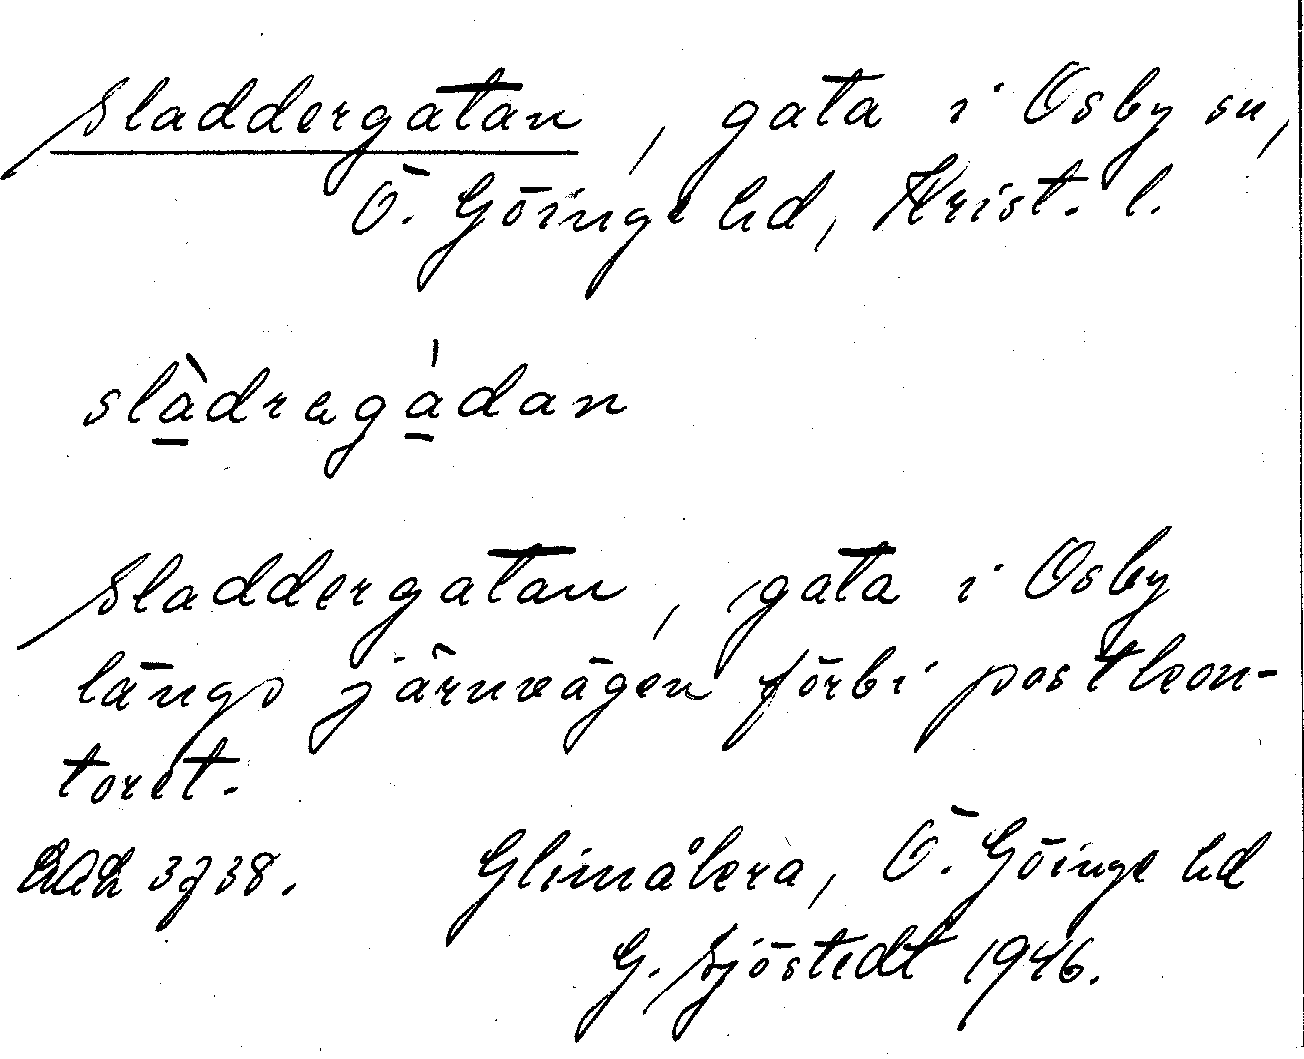 Sladdergatan, gata i Osby sn,
Ö. Göinge hd, Krist. l.
slàdragádan
Sladdergatan, gata i Osby
längs järnvägen förbi postkon-
toret.
3738. Glimåkra, Ö. Göinge hd
G. Sjöstedt 1946.